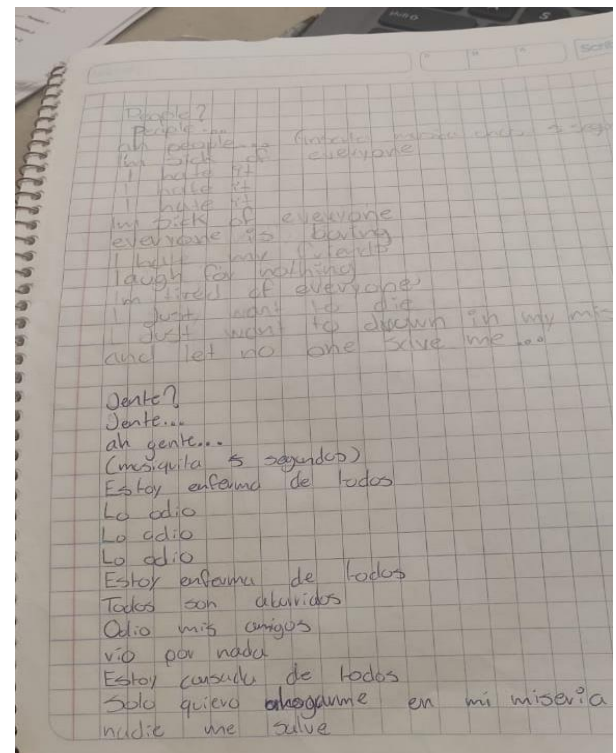 People?
People...
ah people...
Im sick of everyone
I hate it
I hate it
I hate it
Im sick of everyone
everyone is boring
I hate my friends
laugh for nothing
Im tired of everyone
I just want to die
I just want to drown in my mis
and let no one save me...
Jente?
Jente...
ah gente...
(musiquita 5 segundos)
Estoy enferma de todos
Lo odio
Lo odio
Lo odio
Estoy enferma de todos
Todos son aburridos
Odio mis amigos
río por nada
Estoy cansada de todos
Solo quiero ahogarme en mi miseria
nadie me salve